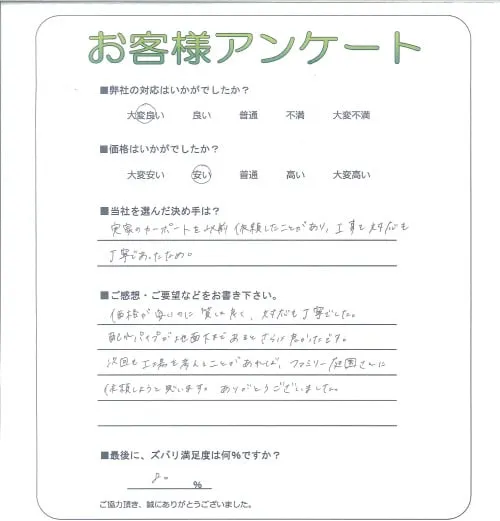 お客様アンケート
■弊社の対応はいかがでしたか?
大変良い 良い 普通 不満 大変不満
■価格はいかがでしたか?
大変安い 安い 普通 高い 大変高い
■当社を選んだ決め手は?
実家のカーポートを以前依頼したことがあり、工事も対応も
丁寧であったため。
■ご感想・ご要望などをお書き下さい。
価格が安いのに質も良く、対応も丁寧でした。
配水パイプが地面下まであるとさらに良かったです。
次回も工場を考えることがあれば、ファミリー庭園さんに
依頼しようと思います。ありがとうございました。
■最後に、ズバリ満足度は何%ですか?
80 %
ご協力頂き、誠にありがとうございました。